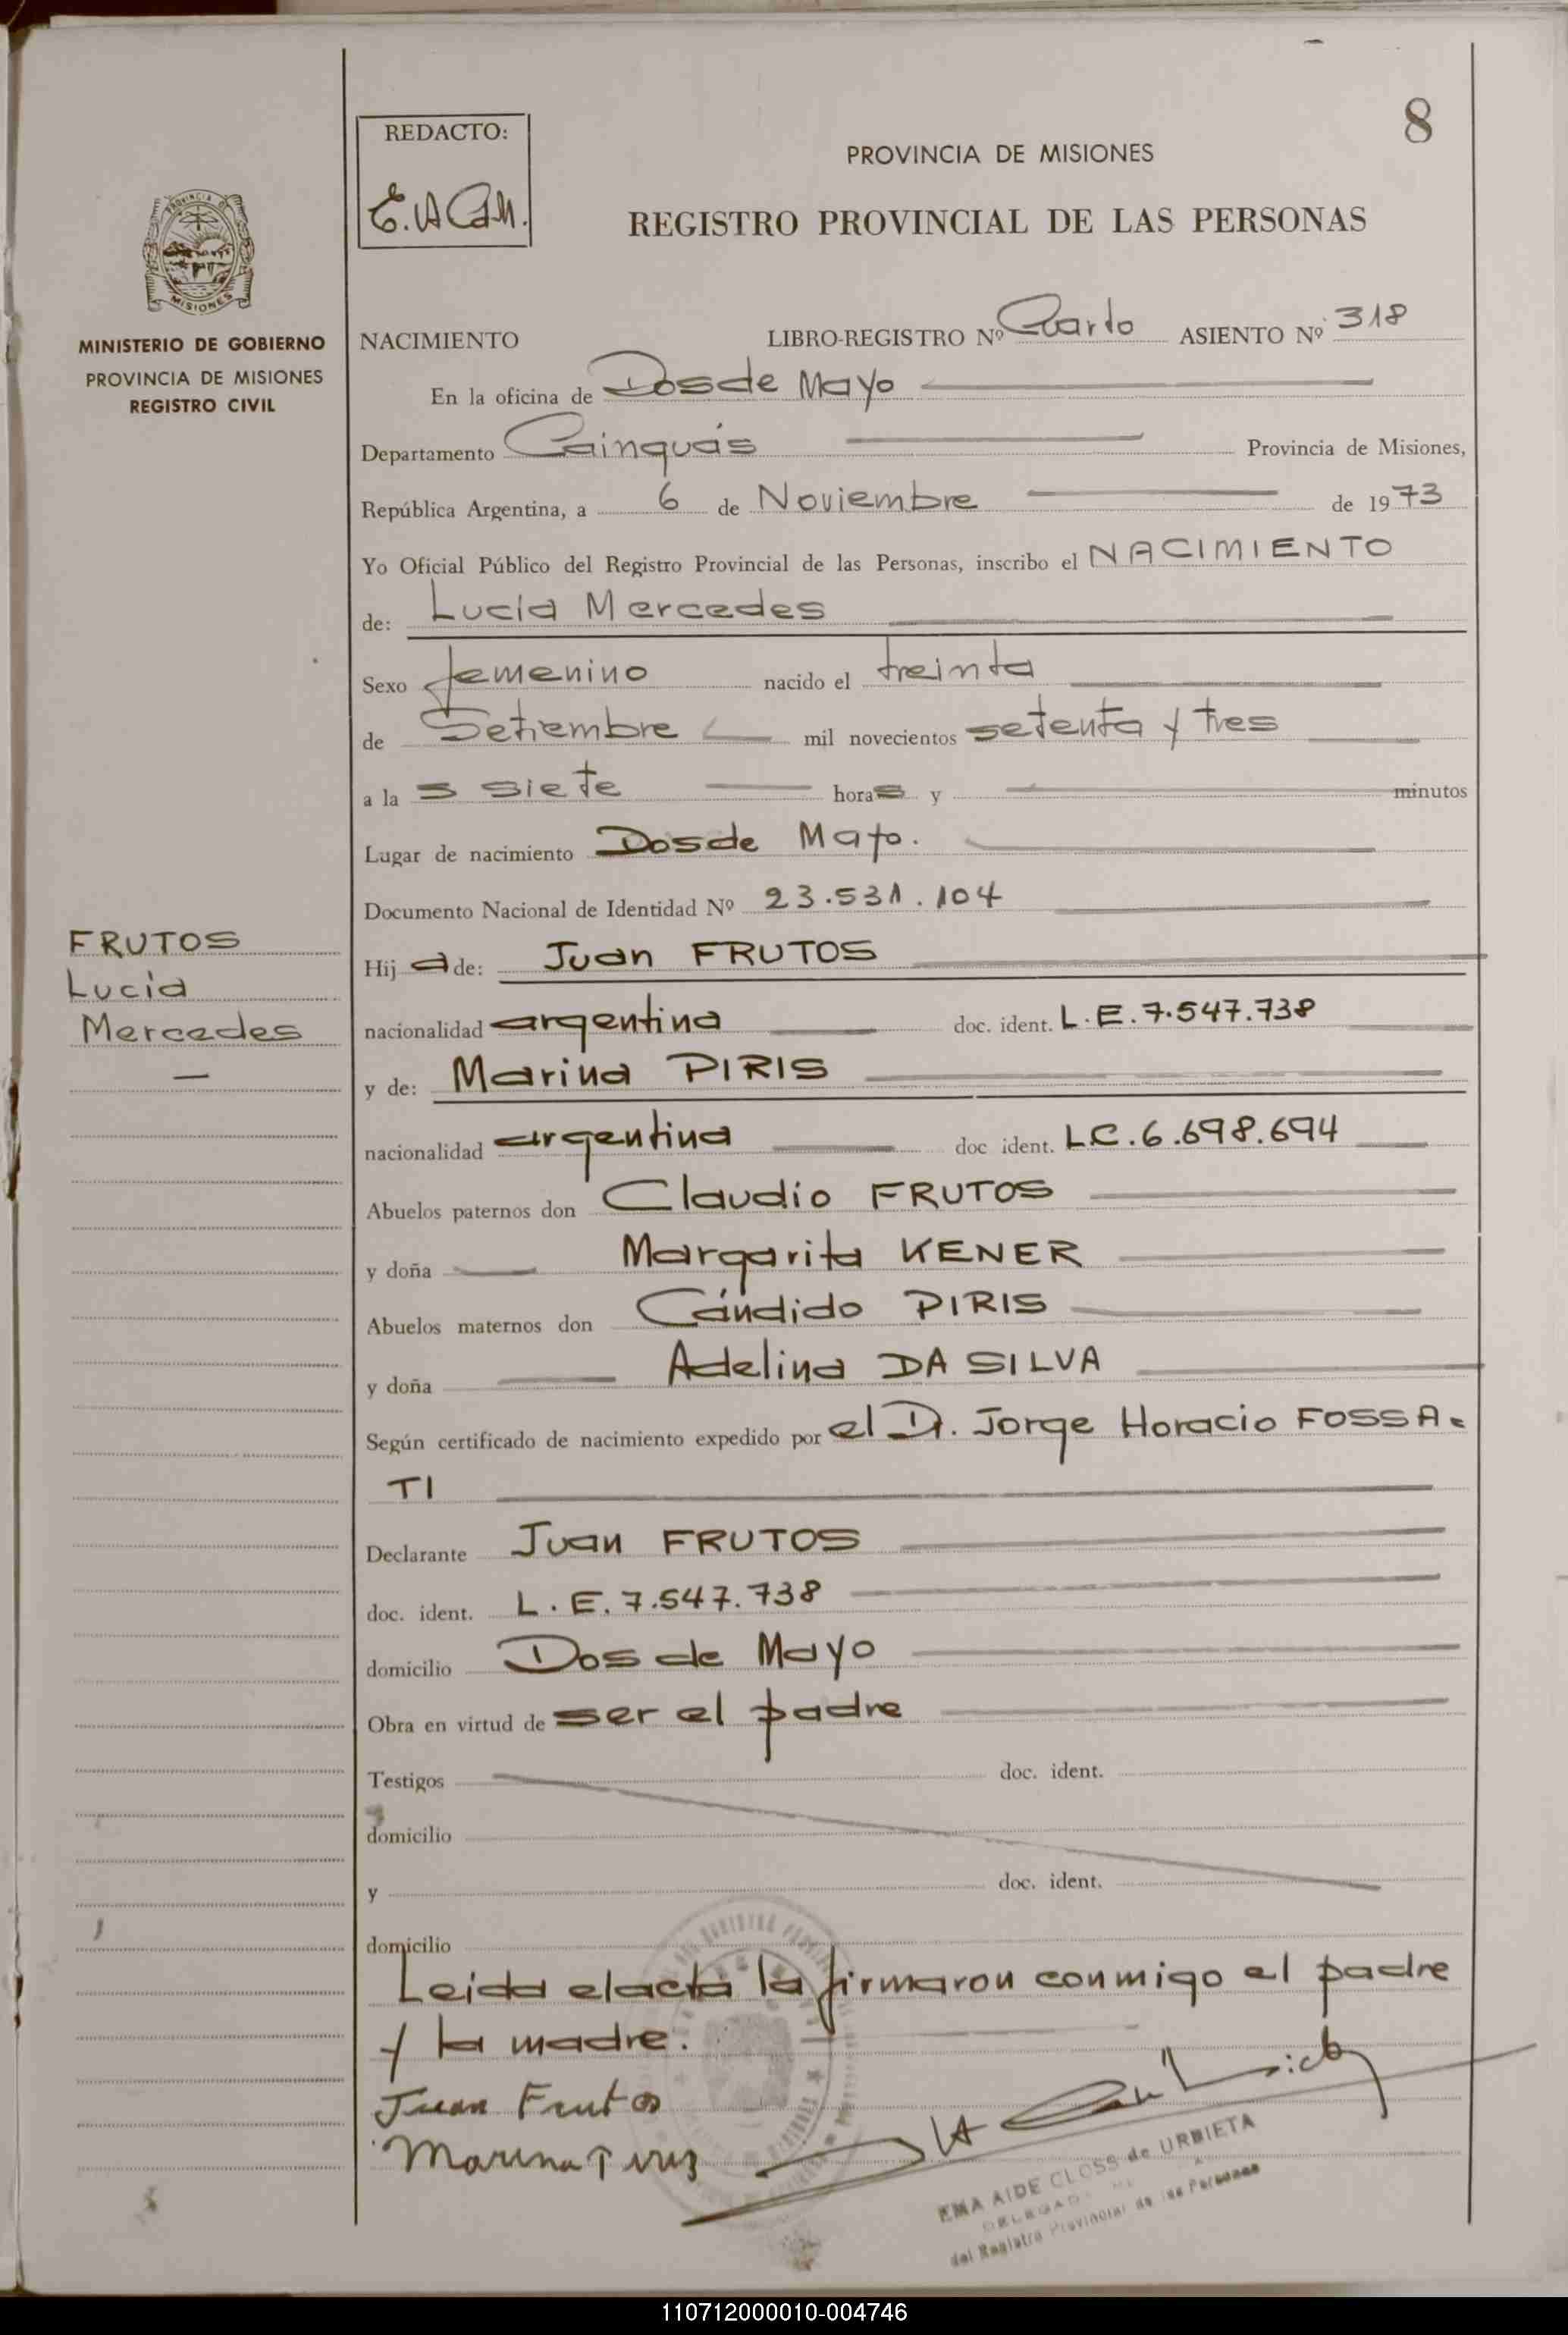 8
REDACTO:
E.A C.M.
PROVINCIA DE MISIONES
REGISTRO PROVINCIAL DE LAS PERSONAS
PROVINCIA DE
MISIONES
MINISTERIO DE GOBIERNO
PROVINCIA DE MISIONES
REGISTRO CIVIL
NACIMIENTO LIBRO-REGISTRO Nº Cuarto ASIENTO Nº 318
En la oficina de Dos de Mayo
Departamento Cainguás Provincia de Misiones,
República Argentina, a 6 de Noviembre de 1973
Yo Oficial Público del Registro Provincial de las Personas, inscribo el NACIMIENTO
de: Lucía Mercedes
Sexo femenino nacido el treinta
de Setiembre mil novecientos setenta y tres
a la s siete horas y minutos
Lugar de nacimiento Dos de Mayo.
Documento Nacional de Identidad Nº 23.531.104
FRUTOS
Lucía
Mercedes
Hij a de: Juan FRUTOS
nacionalidad argentina doc. ident. L.E.7.547.738
y de: Marina PIRIS
nacionalidad argentina doc ident. L.C.6.698.694
Abuelos paternos don Claudio FRUTOS
y doña Margarita KENER
Abuelos maternos don Cándido PIRIS
y doña Adelina DA SILVA
Según certificado de nacimiento expedido por el Dr. Jorge Horacio FOSSA-
TI
Declarante Juan FRUTOS
doc. ident. L.E.7.547.738
domicilio Dos de Mayo
Obra en virtud de ser el padre
Testigos doc. ident.
domicilio
y doc. ident.
domicilio
Leida el acta la firmaron conmigo el padre
y la madre.
Juan Frutos
Marina Piris
EMA AIDE CLOSS de URBIETA
del Registro Provincial de las Personas
110712000010-004746